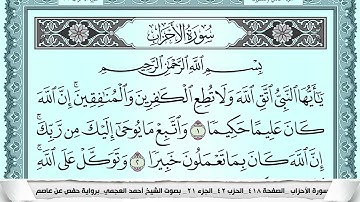 سُورَةُ الأَحْزَابِ
بِسْمِ اللَّهِ الرَّحْمَٰنِ الرَّحِيمِ
يَٰٓأَيُّهَا ٱلنَّبِيُّ ٱتَّقِ ٱللَّهَ وَلَا تُطِعِ ٱلْكَٰفِرِينَ وَٱلْمُنَٰفِقِينَۗ إِنَّ ٱللَّهَ
كَانَ عَلِيمًا حَكِيمًا ١ وَٱتَّبِعْ مَا يُوحَىٰٓ إِلَيْكَ مِن رَّبِّكَۚ
إِنَّ ٱللَّهَ كَانَ بِمَا تَعْمَلُونَ خَبِيرًا ٢ وَتَوَكَّلْ عَلَى ٱللَّهِۚ
سورة الأحزاب_ الصفحة ٤١٨_ الحزب ٤٢_ الجزء ٢١_ بصوت الشيخ أحمد العجمي_ برواية حفص عن عاصم